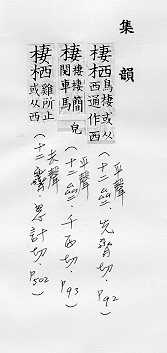 集韻
棲栖鳥棲或从西通作西
（平聲十二齊．先齊切．P92）
棲棲棲簡閱車馬皃
（平聲十二齊．千西切．P93）
棲栖雞所止或从西
（去聲十二霽．思計切．P502）